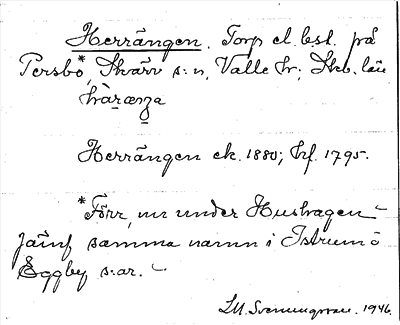 Herrängen. Torp el. bst. på
Persbo*, Skärv s:n, Valle hr; Skb. län
hæ̀ræŋa
Herrängen ek. 1880; hf. 1795.
*Förr, nu under Hushagen –
jämf samma namn i Istrum o
Eggby s:ar. –
I.M. Svenningsson. 1946.